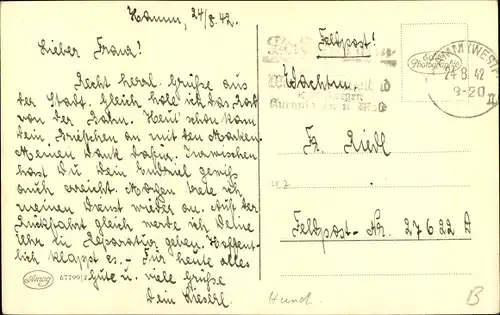 Hamm, 24/8.42.
Lieber Franz!
Recht herzl. Grüße aus
der Stadt. Gleich hole ich das Rad
von der Bahn. Heut' schon kam
Dein Briefchen an mit den Marken.
Meinen Dank dafür. Inzwischen
hast Du Dein Endziel gewiss
auch erreicht. Morgen trete ich
meinen Dienst wieder an. Auf der
Rückfahrt gleich werde ich Deine
Uhr zu Reparatur geben. Hoffent-
lich klappt es.- Für heute alles
Gute u. viele Grüße
Dein
Feldpost!
Wachtm.
Fz. Riedl
Feldpost-Nr. 27622 A
Echte
Photographie
HAMM (WESTF)
24.8.42
9-20
II
Amag
Hund.
B